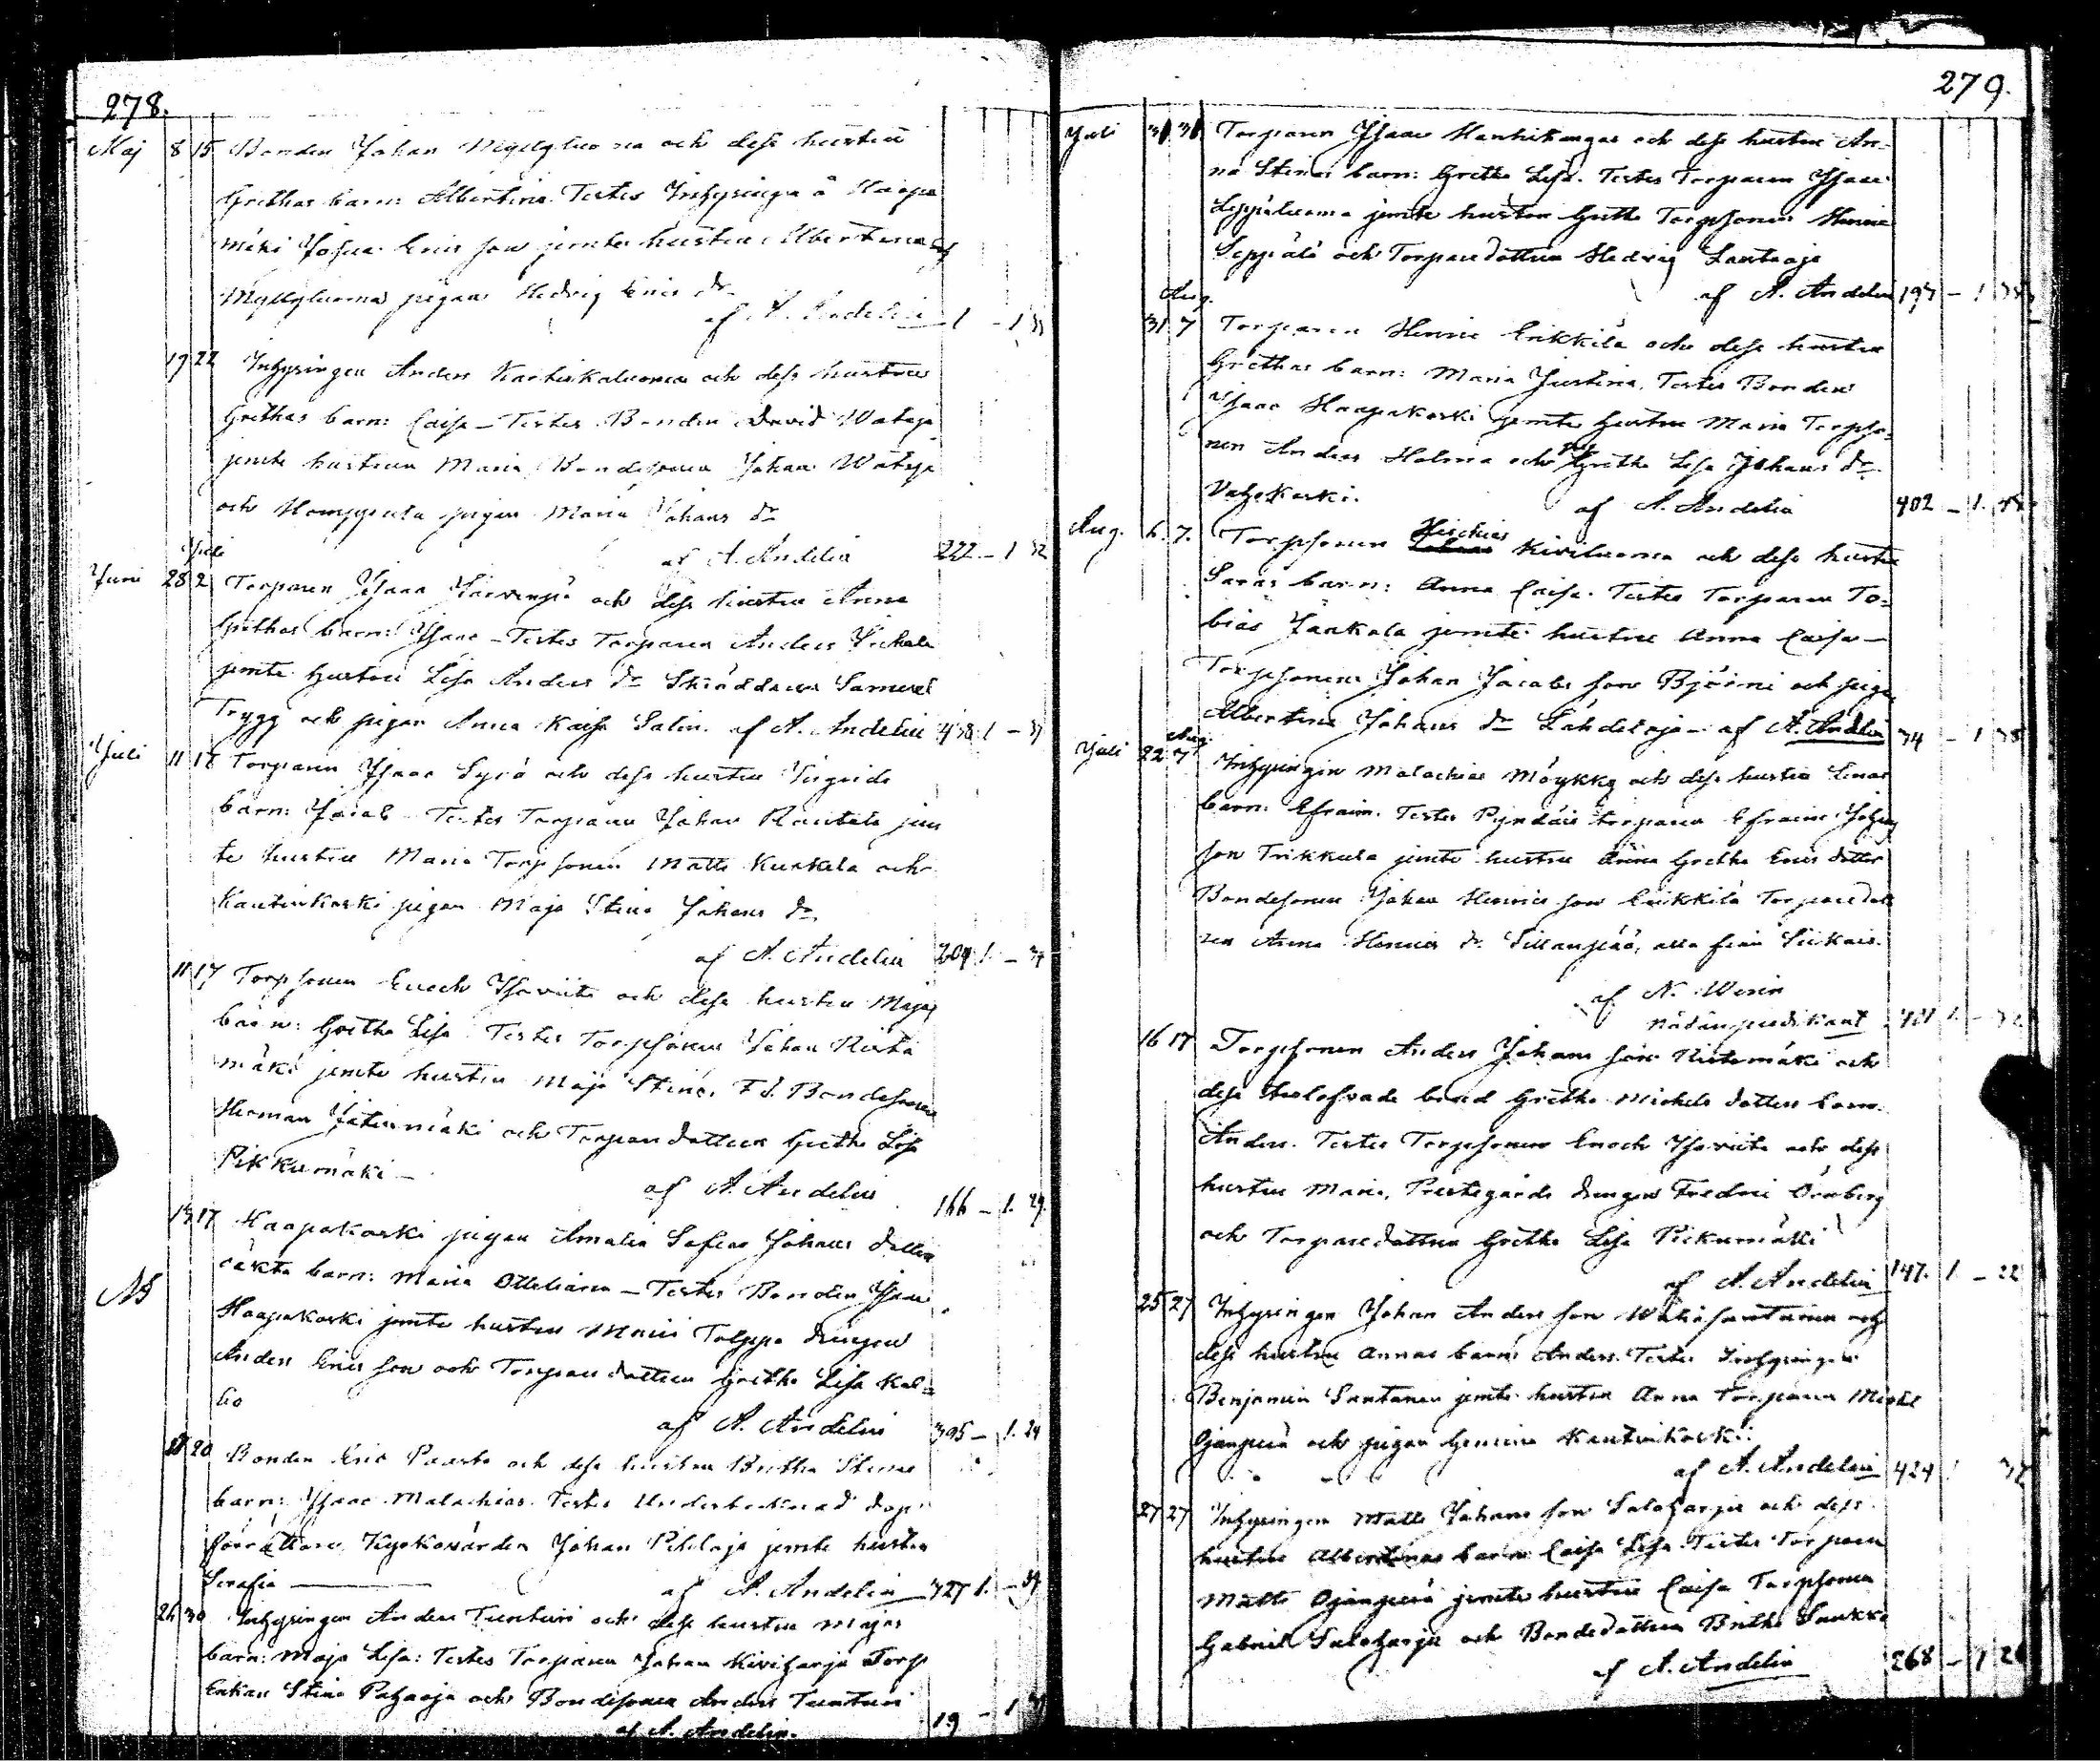 278.
Maj 8 15 Bonden Johan Myllyluoma och dess hustru
Grethas barn: Albertina. Testes Inhysingen å Haapa
mäki Josua Erics son jemte hustru Albertina och
Myllyluoma pigan Hedvig Erics dr
af A. Andelin 1 - 1 33
19 22 Inhysingen Anders Kaihukaluoma och dess hustrus
Grethas barn: Caisa - Testes Bonden David Wataja
jemte hustrun Maria Bondesonen Johan Wataja
och Homppula pigan Maria Johans dr
af A. Andelin 222 - 1 32
Juli
Juni 28 2 Torparen Isaac Järvenpä och dess hustru Anna
Grethas barn: Isaac - Testes Torparen Anders
jemte hustru Lisa Anders dr Skräddaren Samuel
Trygg och pigan Anna Kaisa Salin. af A. Andelin 438 1 - 37
Juli 11 17 Torparen Isaac Syrä och dess hustru Ingrids
barn: Jacob - Testes Torparen Johan Rautala jem
te hustru Maria Torpsonen Matts Kurkela och
Kautinkoski pigan Maja Stina Johans dr
af A. Andelin 209 1 - 34
11 17 Torpsonen Enoch Isoviita och dess hustru Majas
barn: Gretha Lisa Testes Torpsonen Johan Rista
mäki jemte hustru Maja Stina, F.d. Bondesonen
Herman Jätinmäki och Torparedottren Gretha Lisa
Pikkumäki -
af A. Andelin 166 - 1. 29.
13 17 Haapakoski pigan Amalia Sofias Johans dotters
oäkta barn: Maria Otteliana - Testes Bonden Isaac
NB Haapakoski jemte hustru Maria Tolppa drengen
Anders Erics son och Torpare dottren Gretha Lisa Kal=
lio
af A. Andelin 395 - 1. 24
20 Bonden Eric Paasto och dess hustru Britha Stinas
barn: Isaac Malachias. Testes Undertecknad dop
förrättare Kyrkovärden Johan Pihlaja jemte hustru
Serafia af A. Andelin 327 1. - 39
26 30 Inhysingen Anders Tunturi och dess hustru Majas
barn: Maja Lisa: Testes Torparen Johan Kiviharju Torp
Enkan Stina Pahaoja och Bondesonen Anders Tunturi
af A. Andelin. 19 - 1
279.
Juli 31 31 Torparen Isaac Hanhikangas och dess hustru An=
na Stinas barn: Gretha Lisa. Testes Torparen Isaac
Leppäluoma jemte hustru Gretha Torpsonen Henric
Seppälä och Torpare dottren Hedvig Lautaoja
af A. Andelin 197 - 1 38
Aug.
31 7 Torparen Henric Erikkilä och dess hustru
Grethas barn: Maria Justina. Testes Bonden
Isaac Haapakoski jemte hustru Maria Torpso=
nen Anders Holma och Gretha Lisa Johans dr
Vahekoski. af A. Andelin 402 - 1.
Aug. 6. 7. Torpsonen Heschias Kiviluoma och dess hustru
Saras barn: Anna Caisa. Testes Torparen To=
bias Jaakola jemte hustru Anna Caisa -
Torpsonen Johan Jacobs son Björni och pigan
Albertina Johans dr Lähdetaja - af A. Andelin 74 - 1 38
Aug.
Juli 22 7 Inhysingen Malachias Möykky och dess hustru Enas
barn: Efraim. Testes Pyndäis torparen Efraim Johans
son Trikkula jemte hustru Anna Gretha Erics dotter
Bondesonen Johan Henrics son Erikkilä Torparedot
ren Anna Henrics dr Sillanpää, alla från Siikais.
af N. Werin
nådårspredikant 421 1. - 32
16 17 Torpsonen Anders Johans son Ristamäki och
dess trolofvade brud Gretha Michels dotters barn:
Anders. Testes Torpsonen Enoch Isoviita och dess
hustru Maria, Prestegårds drengen Fredric Örnberg
och Torparedottren Gretha Lisa Pickumäki
af A. Andelin 147. 1 - 22
25 27 Inhysingen Johan Anders son Wähäsantanen och
dess hustru Annas barn: Anders. Testes Inhysingen
Benjamin Santanen jemte hustru Anna Torparen Michel
Ojanperä och pigan Gemima Kautinkoski.
af A. Andelin 424 1 32
27 27 Inhysingen Matts Johans son Saloharju och dess
hustru Albertinas barn: Caisa Lisa. Testes Torparen
Matts Ojanperä jemte hustru Caisa Torpsonen
Gabriel Saloharju och Bondedottren Britha Saukko
af A. Andelin 268 - 1 26